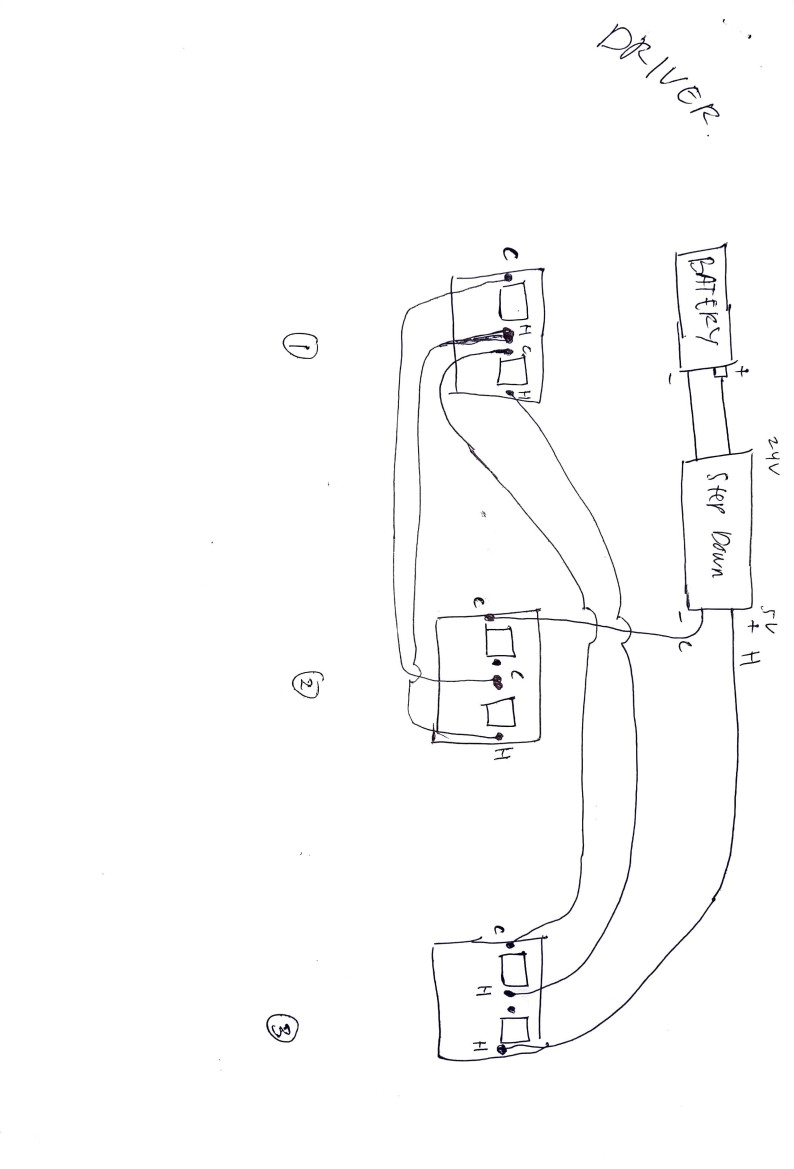 DRIVER.
BATTERY
+
-
24V
Step Down
5V
-
+
H
C
C
H
C
H
1
C
C
H
2
C
H
H
3